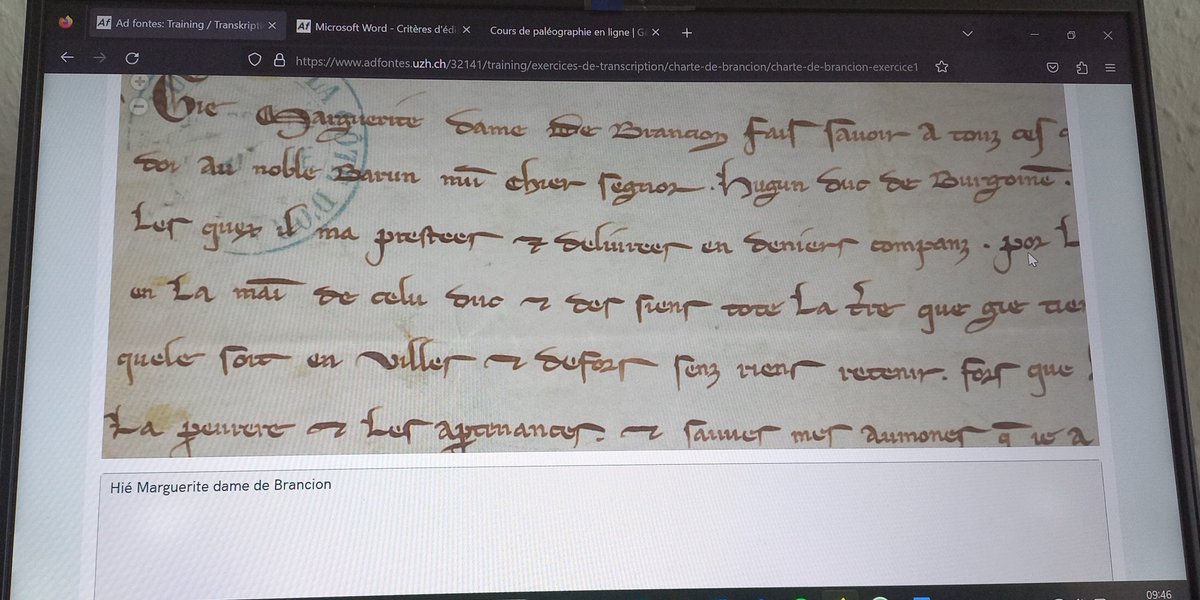 Ad fontes: Training / Transkripti
Microsoft Word - Critères d'édi
Cours de paléographie en ligne | G
https://www.adfontes.uzh.ch/32141/training/exercices-de-transcription/charte-de-brancion/charte-de-brancion-exercice1
Gie Marguerite dame de Brancion fais savoir a touz ces
doi au noble Barun mū chier segnor. Hugun duc de Burgoinē.
Les quex il ma prestees ⁊ delivrees en deniers companz. por L
en La maī de celu duc ⁊ des siens tote La tr̄e que gie tie
quele soit en villes ⁊ defors senz riens retenir. fors que
La ꝑeurere ⁊ Les aꝑtenances. ⁊ sauues mes aumones q̄ ie a
Hié Marguerite dame de Brancion
09:46